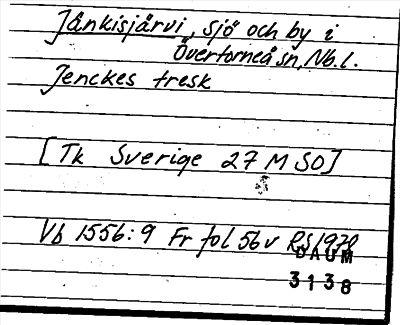 Jänkisjärvi, sjö och by i
Övertorneå sn, Nb. l.
Jenckes tresk
[Tk Sverige 27 M SO]
Vb 1556:9 Fr fol 56 v RS 1970
DAUM
3138